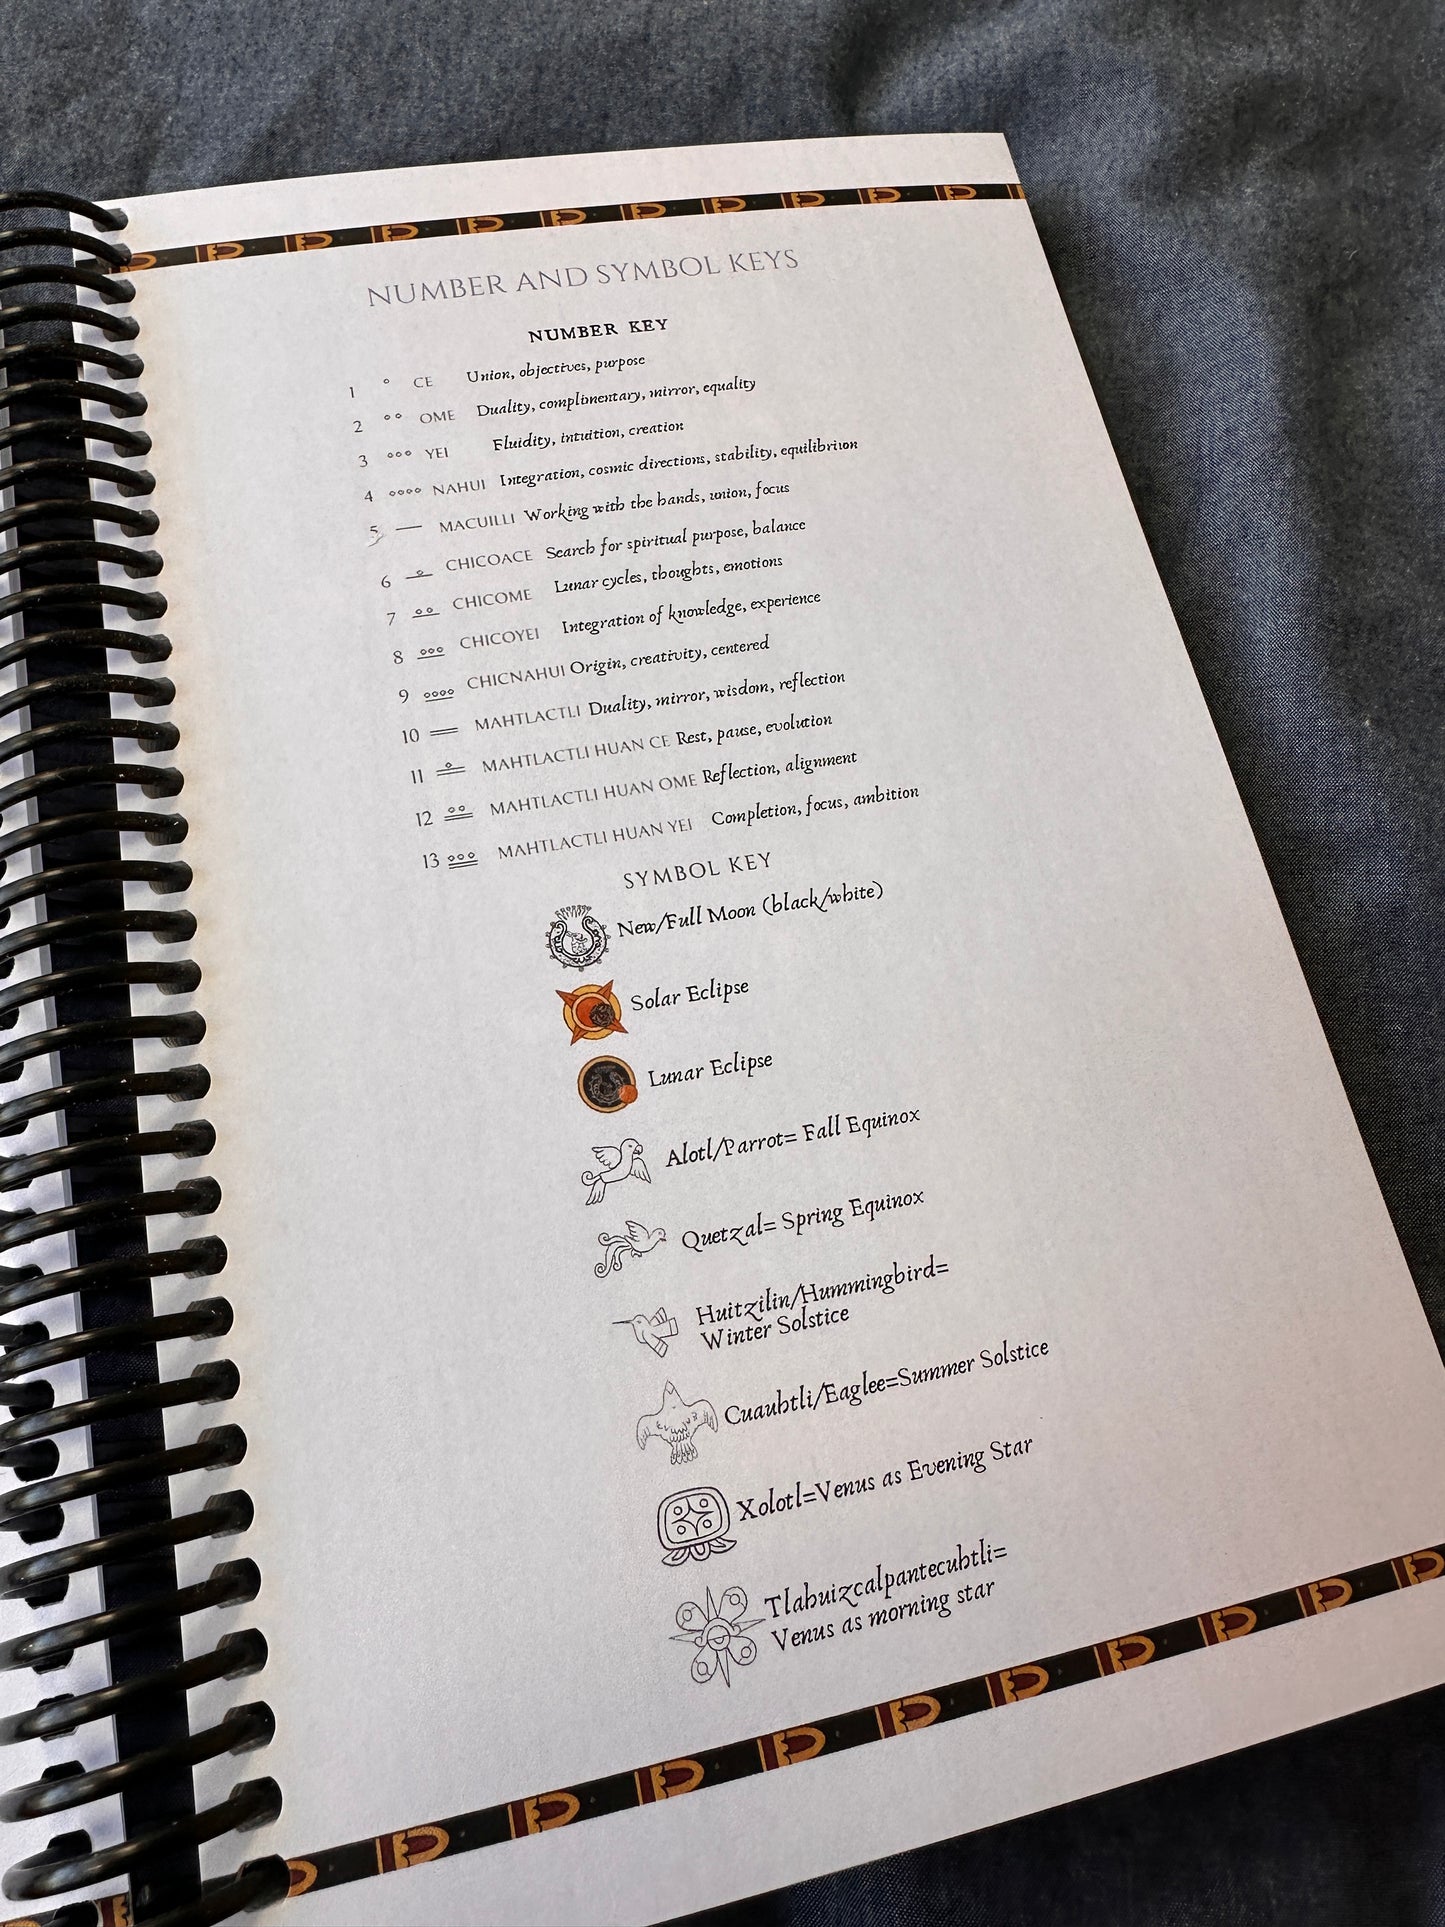 NUMBER AND SYMBOL KEYS
NUMBER KEY
1 CE Union, objectives, purpose
2 OME Duality, complimentary, mirror, equality
3 YEI Fluidity, intuition, creation
4 NAHUI Integration, cosmic directions, stability, equilibrium
5 MACUILLI Working with the hands, union, focus
6 CHICOACE Search for spiritual purpose, balance
7 CHICOME Lunar cycles, thoughts, emotions
8 CHICOYEI Integration of knowledge, experience
9 CHICNAHUI Origin, creativity, centered
10 MAHTLACTLI Duality, mirror, wisdom, reflection
11 MAHTLACTLI HUAN CE Rest, pause, evolution
12 MAHTLACTLI HUAN OME Reflection, alignment
13 MAHTLACTLI HUAN YEI Completion, focus, ambition
SYMBOL KEY
New/Full Moon (black/white)
Solar Eclipse
Lunar Eclipse
Alotl/Parrot= Fall Equinox
Quetzal= Spring Equinox
Huitzilin/Hummingbird=
Winter Solstice
Cuauhtli/Eaglee=Summer Solstice
Xolotl=Venus as Evening Star
Tlahuizcalpantecuhtli=
Venus as morning star